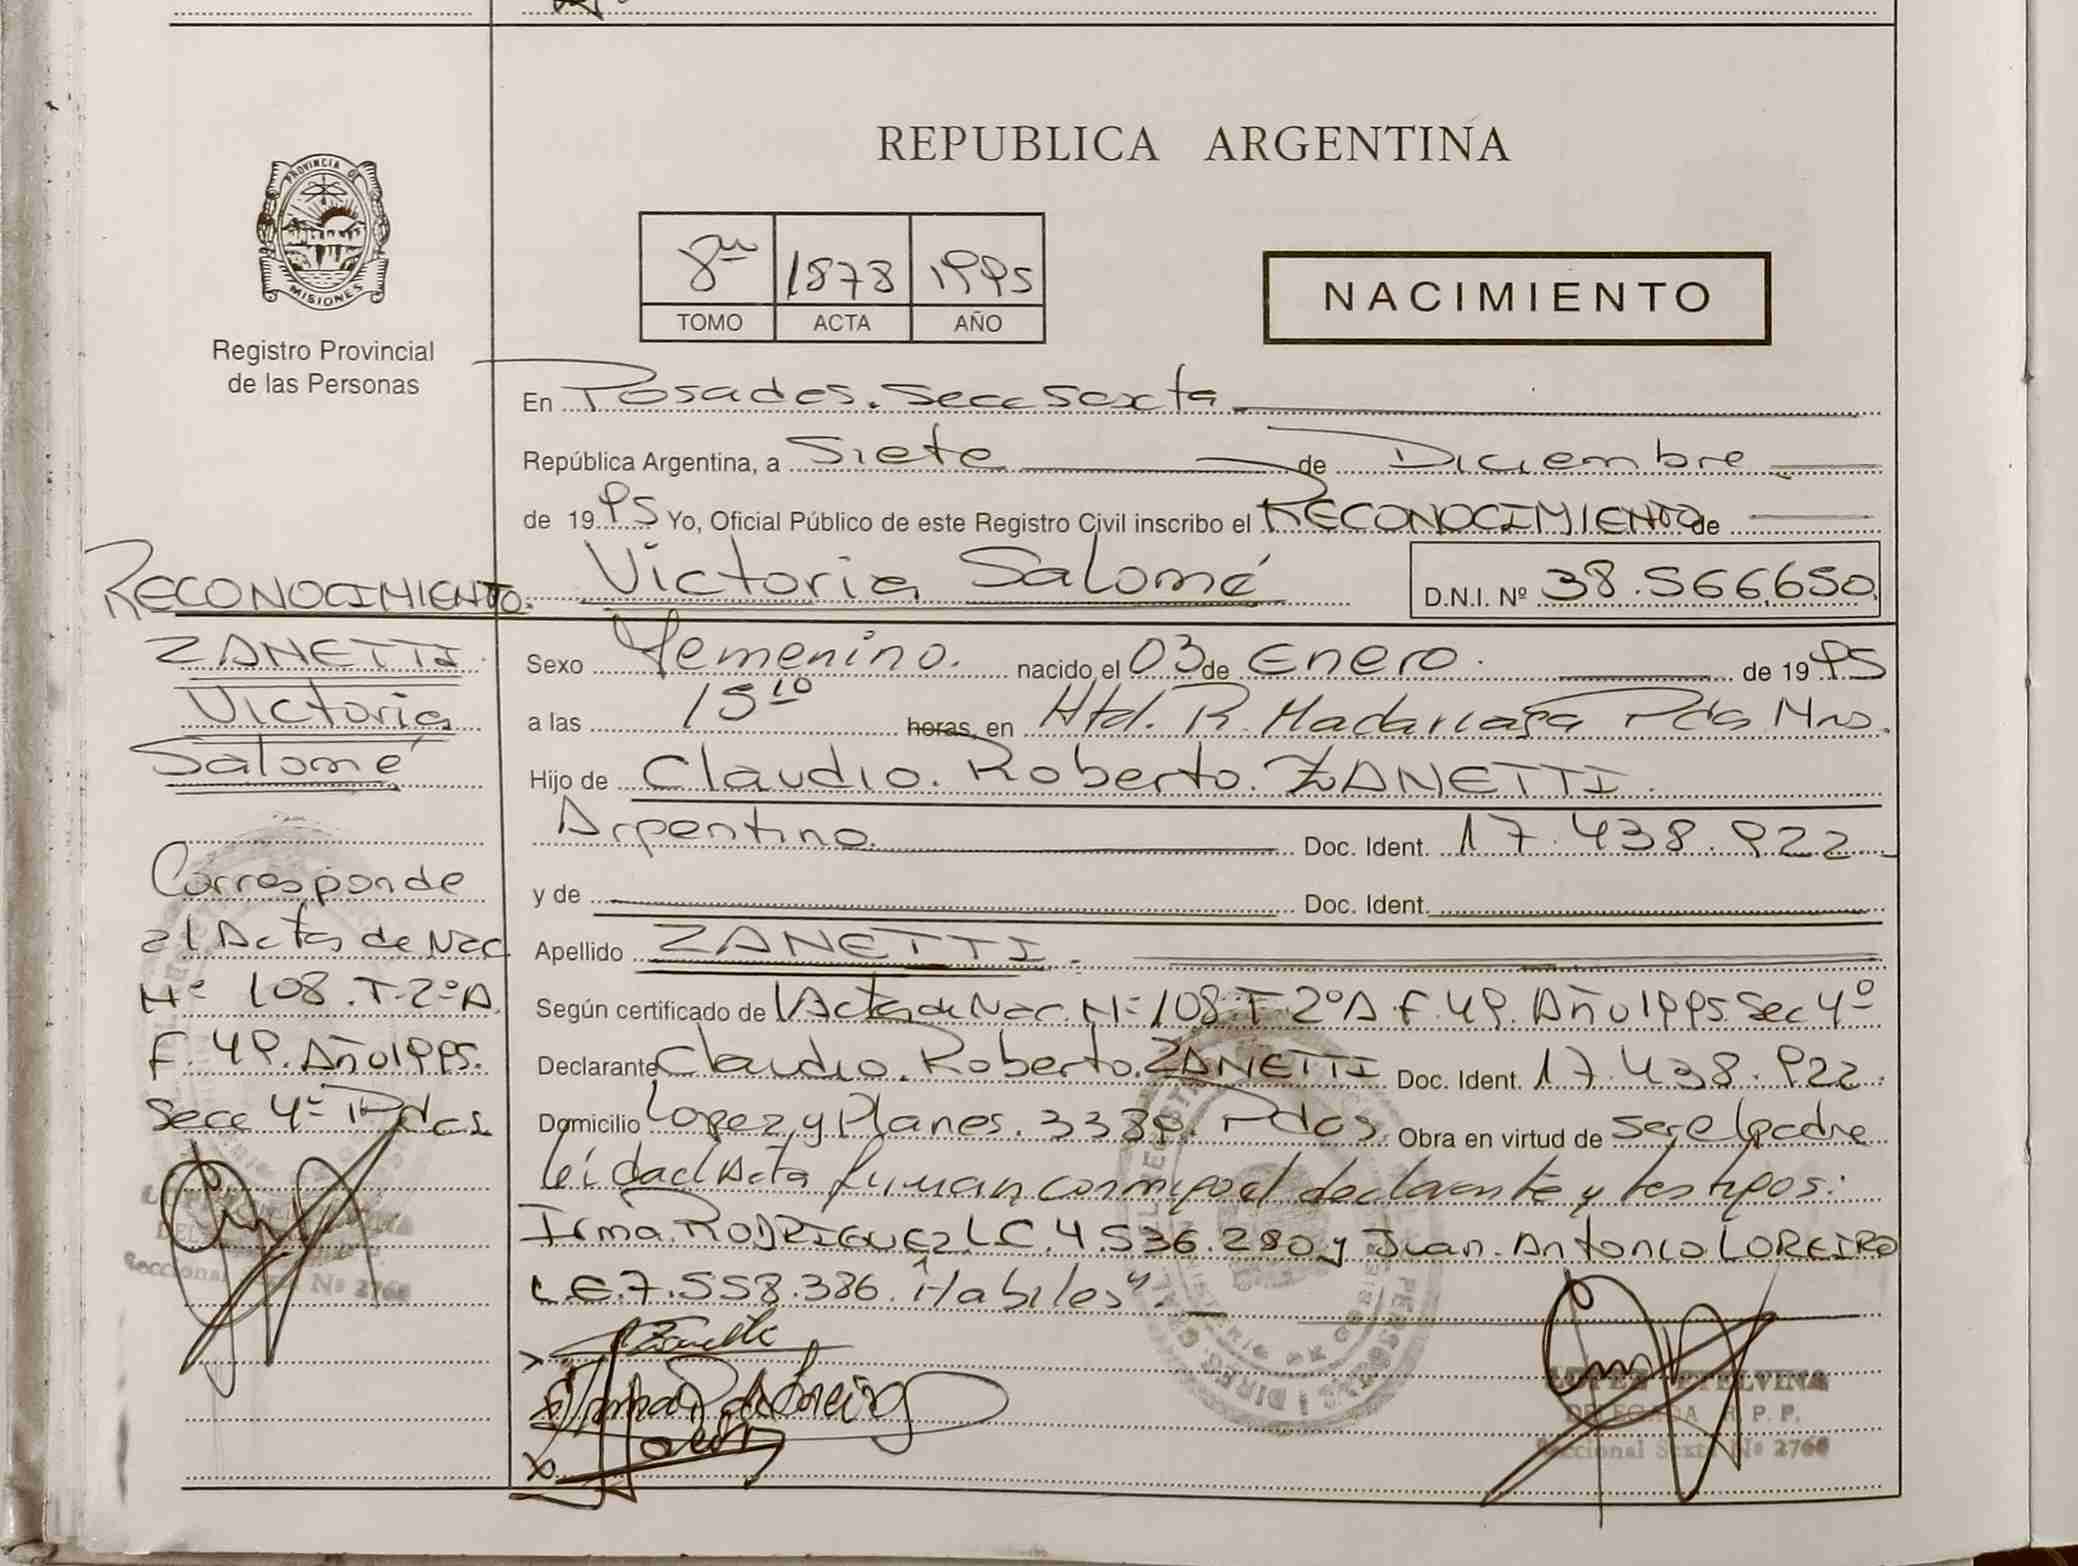 REPUBLICA ARGENTINA
PROVINCIA DE
MISIONES
Registro Provincial
de las Personas
8vo 1878 1995
TOMO ACTA AÑO
NACIMIENTO
En Posadas. Secc Sexta
República Argentina, a Siete de Diciembre
de 1995 Yo, Oficial Público de este Registro Civil inscribo el RECONOCIMIENTO de
Victoria Salomé D.N.I. Nº 38.566.650
Sexo Femenino. nacido el 03 de Enero. de 1995
a las 15 10 horas, en Htal. R. Madariaga Pdas Mnes.
Hijo de Claudio. Roberto. ZANETTI.
Argentino. Doc. Ident. 17.438.922
y de Doc. Ident.
Apellido ZANETTI.
Según certificado de Acta de Nac. Nº 108. T-2ºA. F. 49. Año 1995. Sec 4º
Declarante Claudio. Roberto. ZANETTI Doc. Ident. 17.438.922.
Domicilio Lopez y Planes. 3389. Pdas. Obra en virtud de ser el padre
leída el Acta firman conmigo el declarante y testigos:
Irma. RODRIGUEZ L.C. 4.536.280 y Juan. Antonio LOREIRO
L.E. 7.558.386. "Habiles".
RECONOCIMIENTO.
ZANETTI.
Victoria
Salomé
Corresponde
al Acta de Nac
Nº 108. T-2ºA.
F. 49. Año 1995.
Secc 4º Pdas
Seccional Nº 2766
DELEGADA R. P. P.
Seccional Sexta Nº 2766